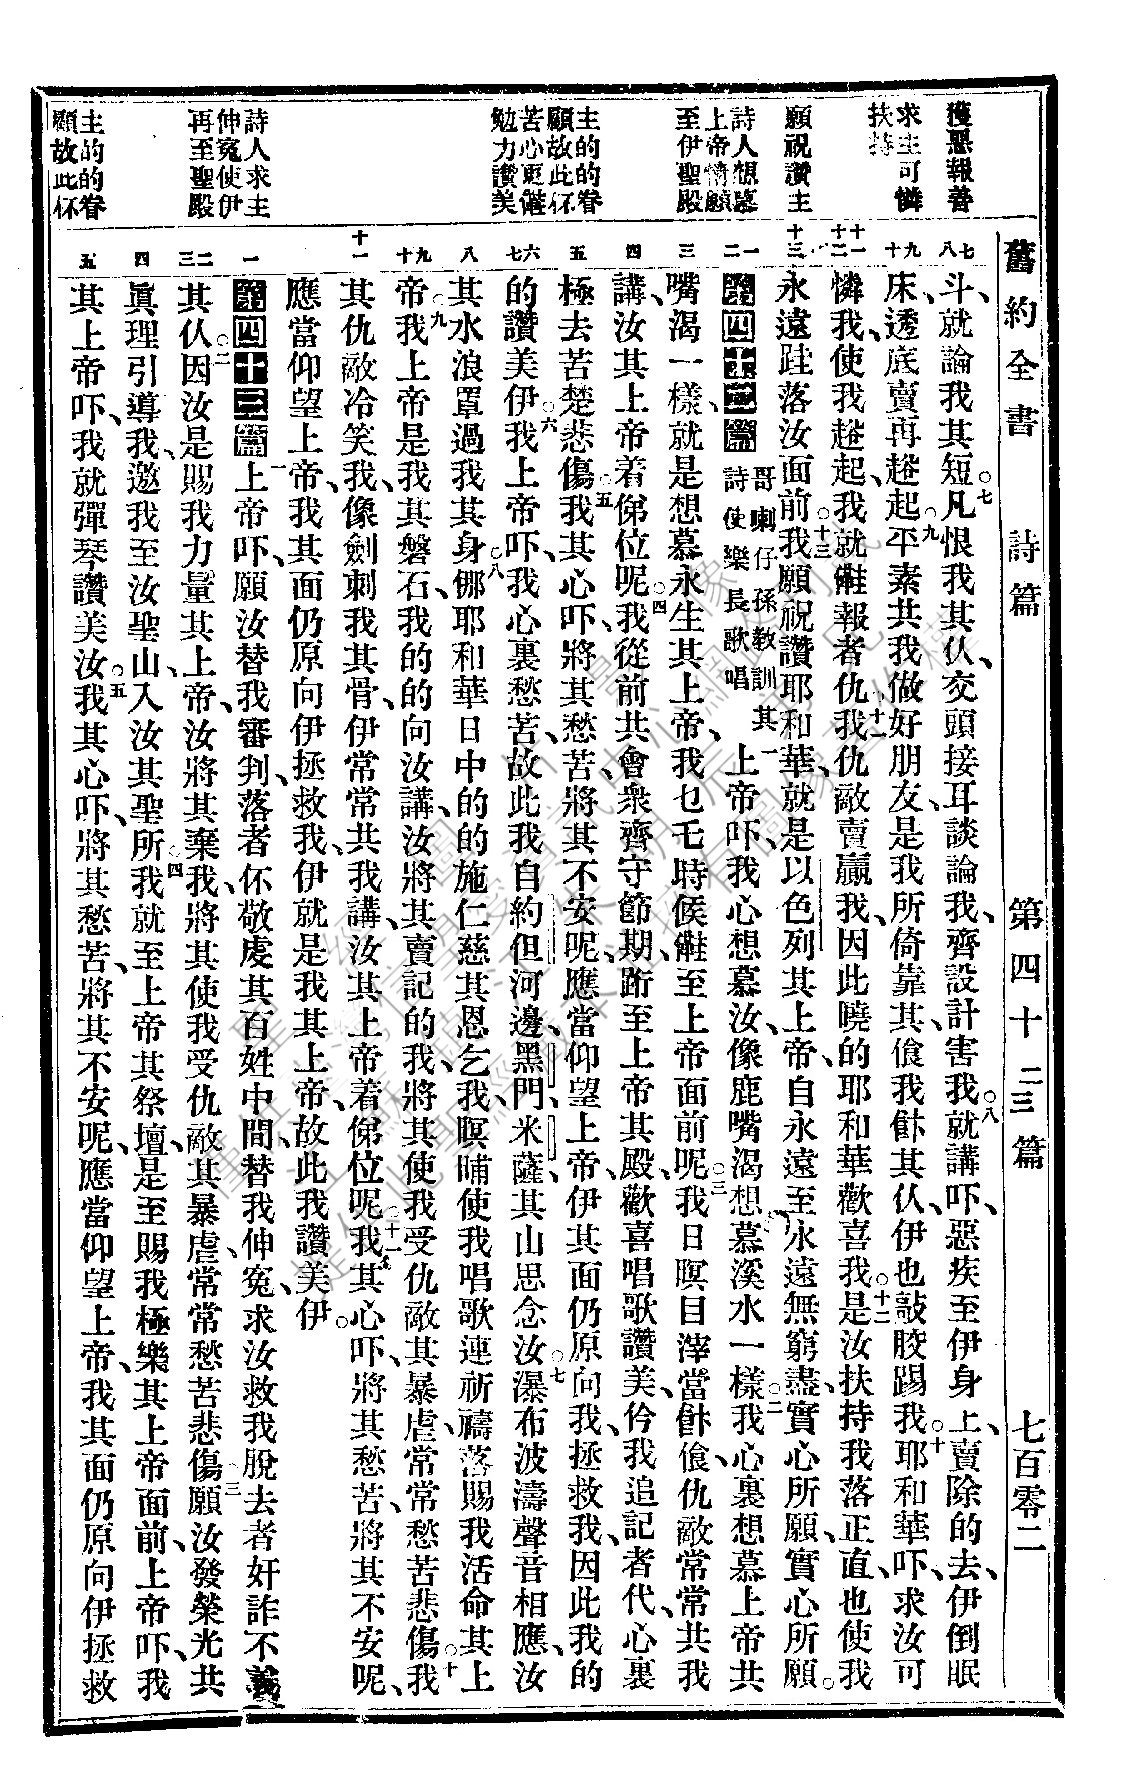 舊約全書 詩篇 第四十二三篇 七百零二
獲惡報善
求主可憐
扶持
願祝讚主
詩人想慕
上帝情願
至伊聖殿
主的的眷
顧故此怀
苦心更𣍐
勉力讚美
詩人求主
伸寃使伊
再至聖殿
主的的眷
顧故此怀
斗、就論我其短、○七凡恨我其仇、交頭接耳談論我、齊設計害我、○八就講吓、惡疾至伊身上、賣除的去、伊倒眠
床、透底賣再趖起、○九平素共我做好朋友、是我所倚靠其、飧我𩚨其仇、伊也敲骹踢我、○十耶和華吓、求汝可
憐我、使我趖起、我就𣍐報者仇、○十一我仇敵賣贏我、因此曉的耶和華歡喜我、○十二是汝扶持我落正直、也使我
永遠跬落汝面前、○十三我願祝讚耶和華、就是以色列其上帝、自永遠至永遠無窮盡、實心所願、實心所願。
第四十二篇 哥喇仔孫教訓其詩使樂長歌唱 一上帝吓、我心想慕汝、像鹿嘴渴想慕溪水一樣、○二我心裏想慕上帝、共
嘴渴一樣、就是想慕永生其上帝、我乜乇時候𣍐至上帝面前呢、○三我日暝目滓當𩚨飧、仇敵常常共我
講、汝其上帝着俤位呢、○四我從前共會衆齊守節期、跀至上帝其殿、歡喜唱歌讚美、仱我追記者代、心裏
極去苦楚悲傷、○五我其心吓、將其愁苦、將其不安呢、應當仰望上帝、伊其面仍原向我、拯救我、因此我的
的讚美伊、○六我上帝吓、我心裏愁苦、故此我自約但河邊、黑門、米薩其山思念汝、○七瀑布波濤聲音相應、汝
其水浪罩過我其身、○八㑚耶和華日中的的施仁慈其恩乞我、暝晡使我唱歌連祈禱落賜我活命其上
帝、○九我上帝是我其磐石、我的的向汝講、汝將其賣記的我、將其使我受仇敵其暴虐、常常愁苦悲傷、○十我
其仇敵冷笑我、像劍刺我其骨、伊常常共我講、汝其上帝着俤位呢、○十一我其心吓、將其愁苦、將其不安呢、
應當仰望上帝、我其面仍原向伊拯救我、伊就是我其上帝、故此我讚美伊。
第四十三篇 一上帝吓、願汝替我審判、落者怀敬虔其百姓中間、替我伸寃、求汝救我脫去者奸詐不義
其仇、○二因汝是賜我力量其上帝、汝將其棄我、將其使我受仇敵其暴虐、常常愁苦悲傷、○三願汝發榮光共
眞理引導我、邀我至汝聖山、入汝其聖所、○四我就至上帝其祭壇、是至賜我極樂其上帝面前、上帝吓、我
其上帝吓、我就彈琴讚美汝、○五我其心吓、將其愁苦、將其不安呢、應當仰望上帝、我其面仍原向伊拯救